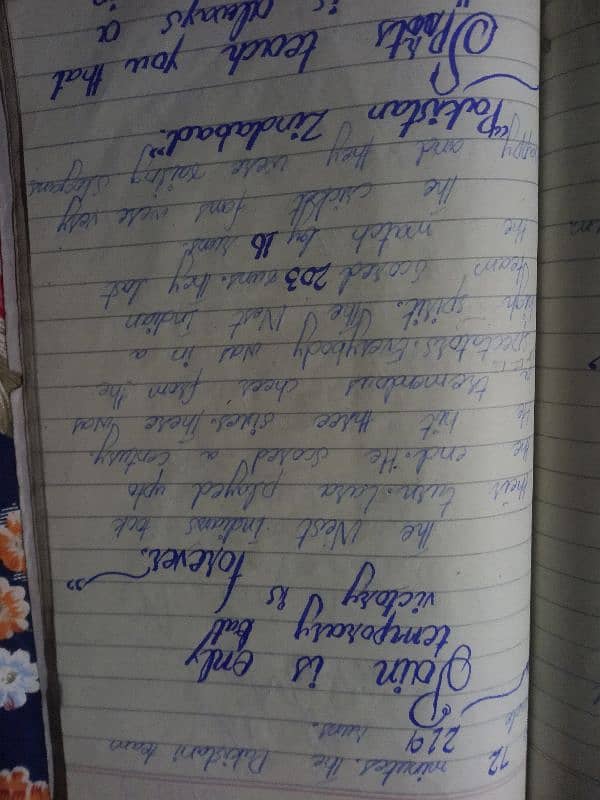 72 minutes. The Pakistani team
219 runs.
Pain is only
temporary but
victory is
forever."
The West indians tok
their turn. Lara played upto
the end. He scored a century.
He hit three sixes. There was
themendous cheer from the
spectators. Everybody was in a
high spirit. The West indian
team scored 203 runs. They lost
the match by 16 runs.
The cricket fans were very
happy and they were raising slogans
"Pakistan Zindabad."
Sports teach you that
is always a